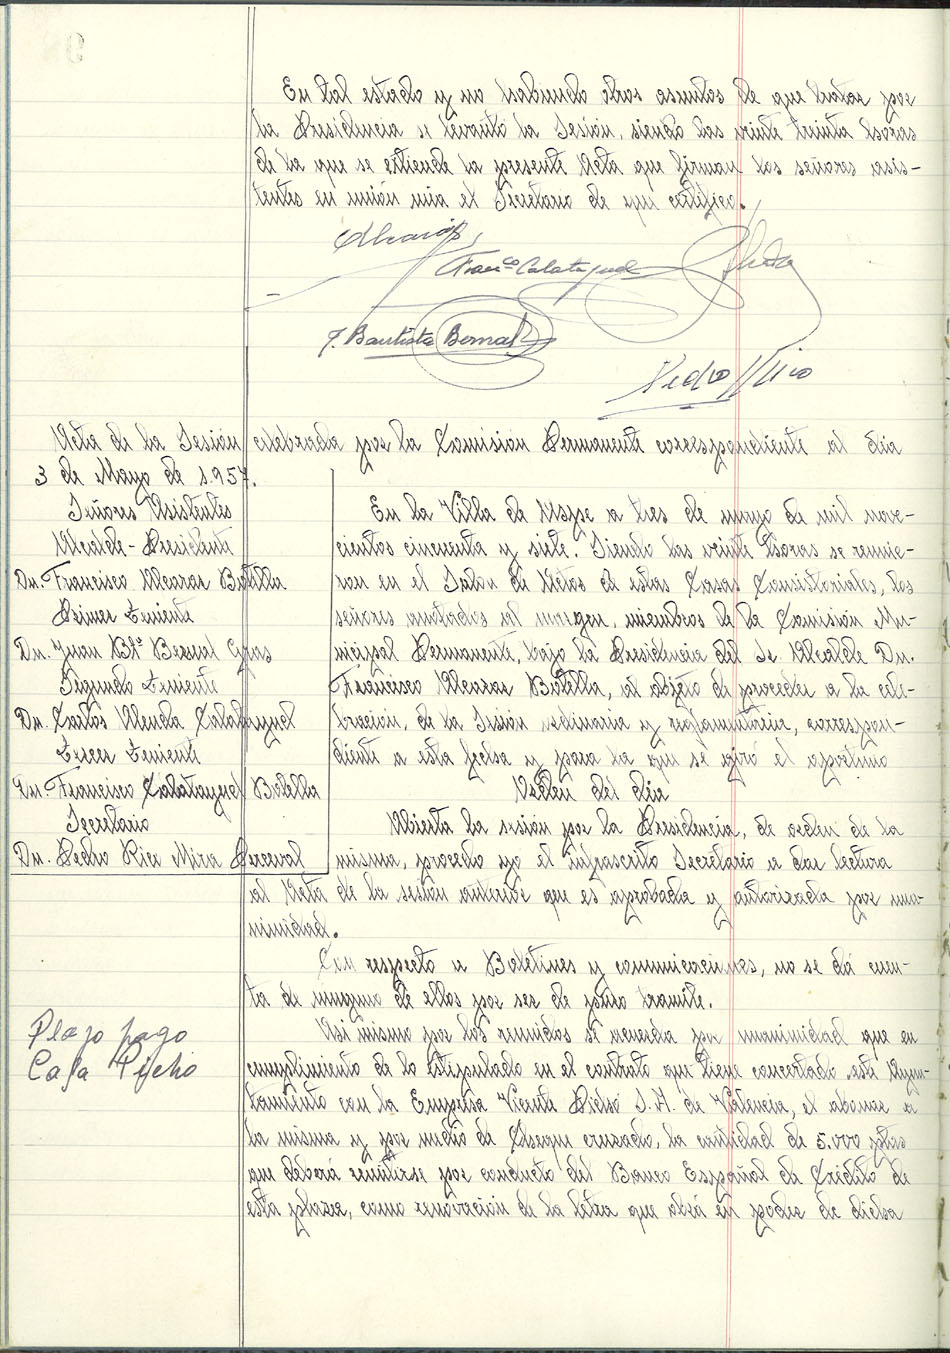 En tal estado y no habiendo otros asuntos de que tratar por
la Presidencia se levantó la Sesión, siendo las veinte treinta horas
de la que se extiende la presente Acta que firman los señores asis-
tentes en unión mia el Secretario de que certifico.
Franco Calatayud
J. Bautista Bernal
Pedro Rico
Acta de la Sesión celebrada por la Comisión Permanente correspondiente al dia
3 de Mayo de 1.957.
Señores Asistentes
Alcalde-Presidente
Dn. Francisco Alcaraz Botella
Primer Teniente
Dn. Juan Bta Bernal Gras
Segundo Teniente
Dn. Carlos Alenda Calatayud
Tercer Teniente
Dn. Francisco Calatayud Botella
Secretario
Dn. Pedro Rico Mira Perceval
En la Villa de Aspe a tres de mayo de mil nove-
cientos cincuenta y siete. Siendo las veinte horas se reunie-
ron en el Salon de Actos de estas Casas Consistoriales, los
señores anotados al margen, miembros de la Comisión Mu-
nicipal Permanente, bajo la Presidencia del Sr. Alcalde Dn.
Francisco Alcaraz Botella, al objeto de proceder a la cele-
bración, de la Sesión ordinaria y reglamentaria, correspon-
diente a esta fecha y para la que se giró el oportuno
Orden del dia
Abierta la sesión por la Presidencia, de orden de la
misma, procedo yo el infrascrito Secretario a dar lectura
al Acta de la sesión anterior que es aprobada y autorizada por una-
nimidad.
Con respecto a Boletines y comunicaciones, no se dá cuen-
ta de ninguno de ellos por ser de puro tramite.
Plazo pago
Casa
Asi mismo por los reunidos se acuerda por unanimidad que en
cumplimiento de lo estipulado en el contrato que tiene concertado este Ayun-
tamiento con la Empresa Vicente S.A. de Valencia, el abonar a
la misma y por medio de cheque cruzado, la cantidad de 5.000 ptas
que deberá remitirse por conducto del Banco Español de Crédito de
esta plaza, como renovación de la letra que obra en poder de dicha